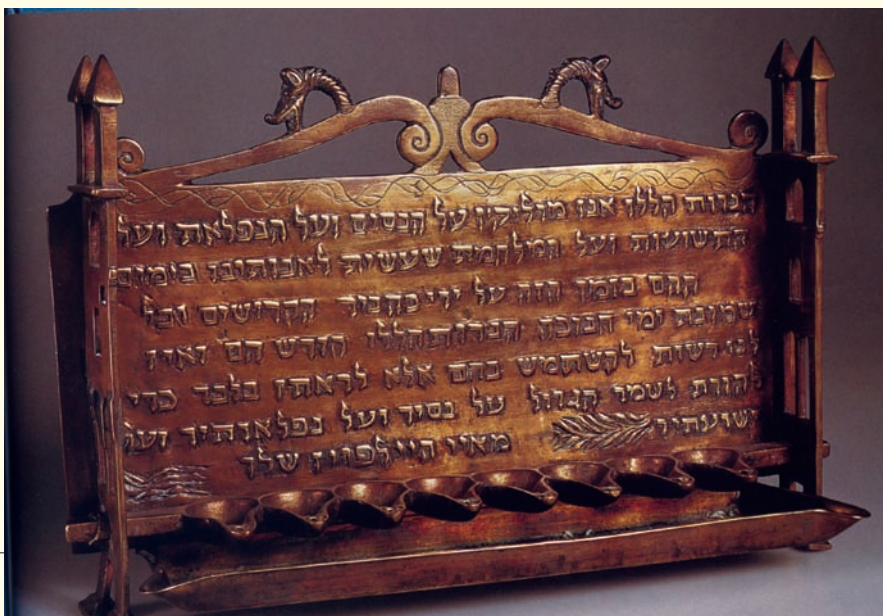 הנרות הללו אנו מדליקין על הנסים ועל הנפלאת ועל
התשועות ועל המלחמת שעשית לאבותינו בימים
ההם בזמן הזה על ידי כהניך הקדושים וכל
שמונת ימי חנוכה הנרות הללו קודש הם ואין
לנו רשות להשתמש בהם אלא לראתן בלבד כדי
להודת לשמך הגדול על נסיך ועל נפלאותיך ועל
ישועתיך שלך